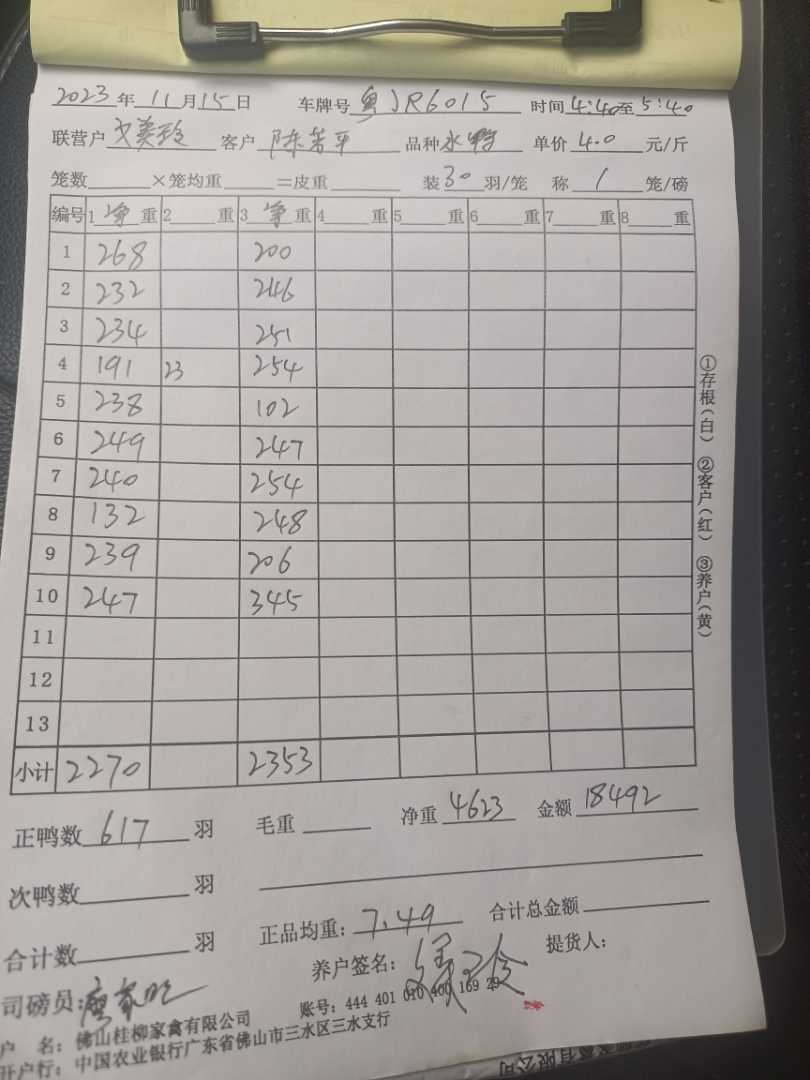 2023年11月15日 车牌号 粤JR6015 时间 4:40至5:40
联营户 文美玲 客户 陈苦平 品种 水鸭 单价 4.0 元/斤
笼数 ×笼均重 =皮重 装 30 羽/笼 称 1 笼/磅
编号 1 净 重 2 重 3 净 重 4 重 5 重 6 重 7 重 8 重
1 268 200
2 232 246
3 234 251
4 191 23 254
5 238 102
6 249 247
7 240 254
8 132 248
9 239 206
10 247 345
11
12
13
小计 2270 2353
正鸭数 617 羽 毛重 净重 4623 金额 18492
次鸭数 羽
合计数 羽 正品均重: 7.49 合计总金额
司磅员: 养户签名: 提货人:
户 名: 佛山桂柳家禽有限公司 账号: 444 401 010 400 169 29
开户行: 中国农业银行广东省佛山市三水区三水支行
①存根(白) ②客户(红) ③养户(黄)
有限公司